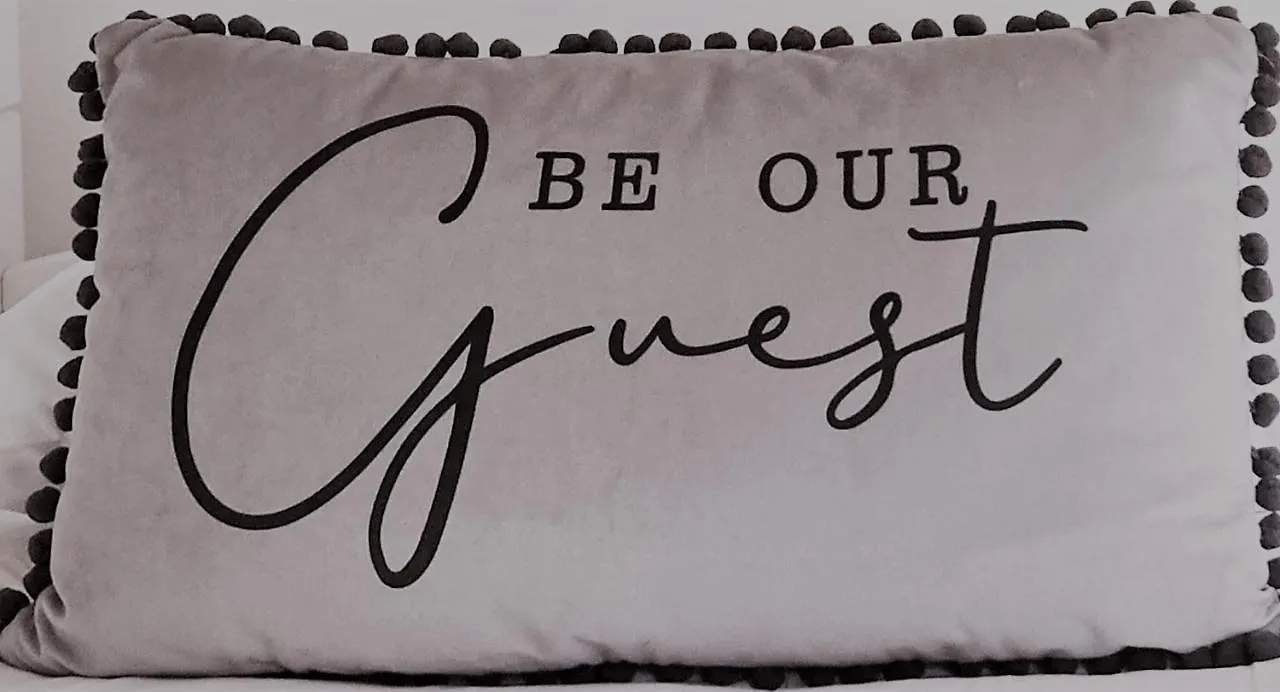 BE OUR
Guest